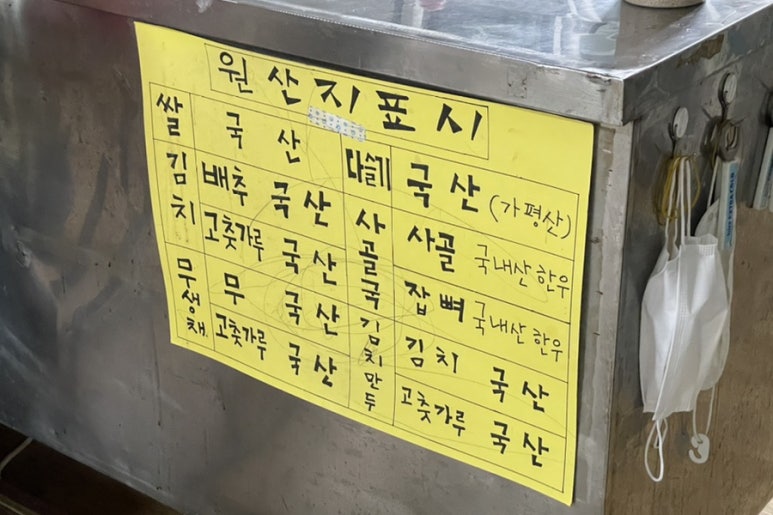 원산지표시
쌀 국산
김치 배추 국산
고춧가루 국산
무생채 무 국산
고춧가루 국산
다슬기 국산 (가평산)
사골국 사골 국내산한우
잡뼈 국내산한우
김치만두 김치 국산
고춧가루 국산